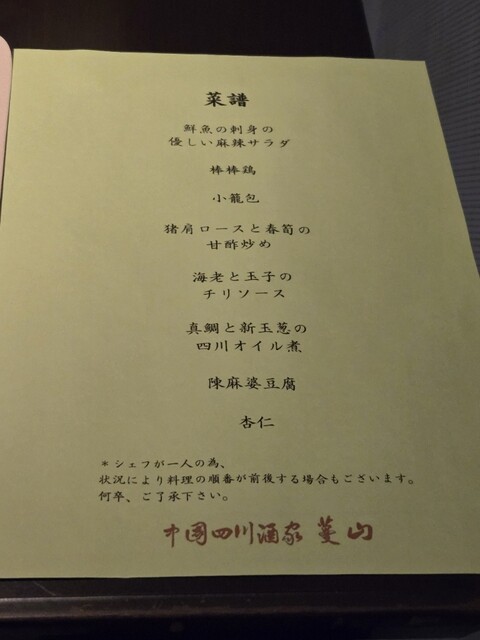 菜譜
鮮魚の刺身の
優しい麻辣サラダ
棒棒鶏
小籠包
猪肩ロースと春筍の
甘酢炒め
海老と玉子の
チリソース
真鯛と新玉葱の
四川オイル煮
陳麻婆豆腐
杏仁
*シェフが一人の為、
状況により料理の順番が前後する場合もございます。
何卒、ご了承下さい。
中國四川酒家 蔓山